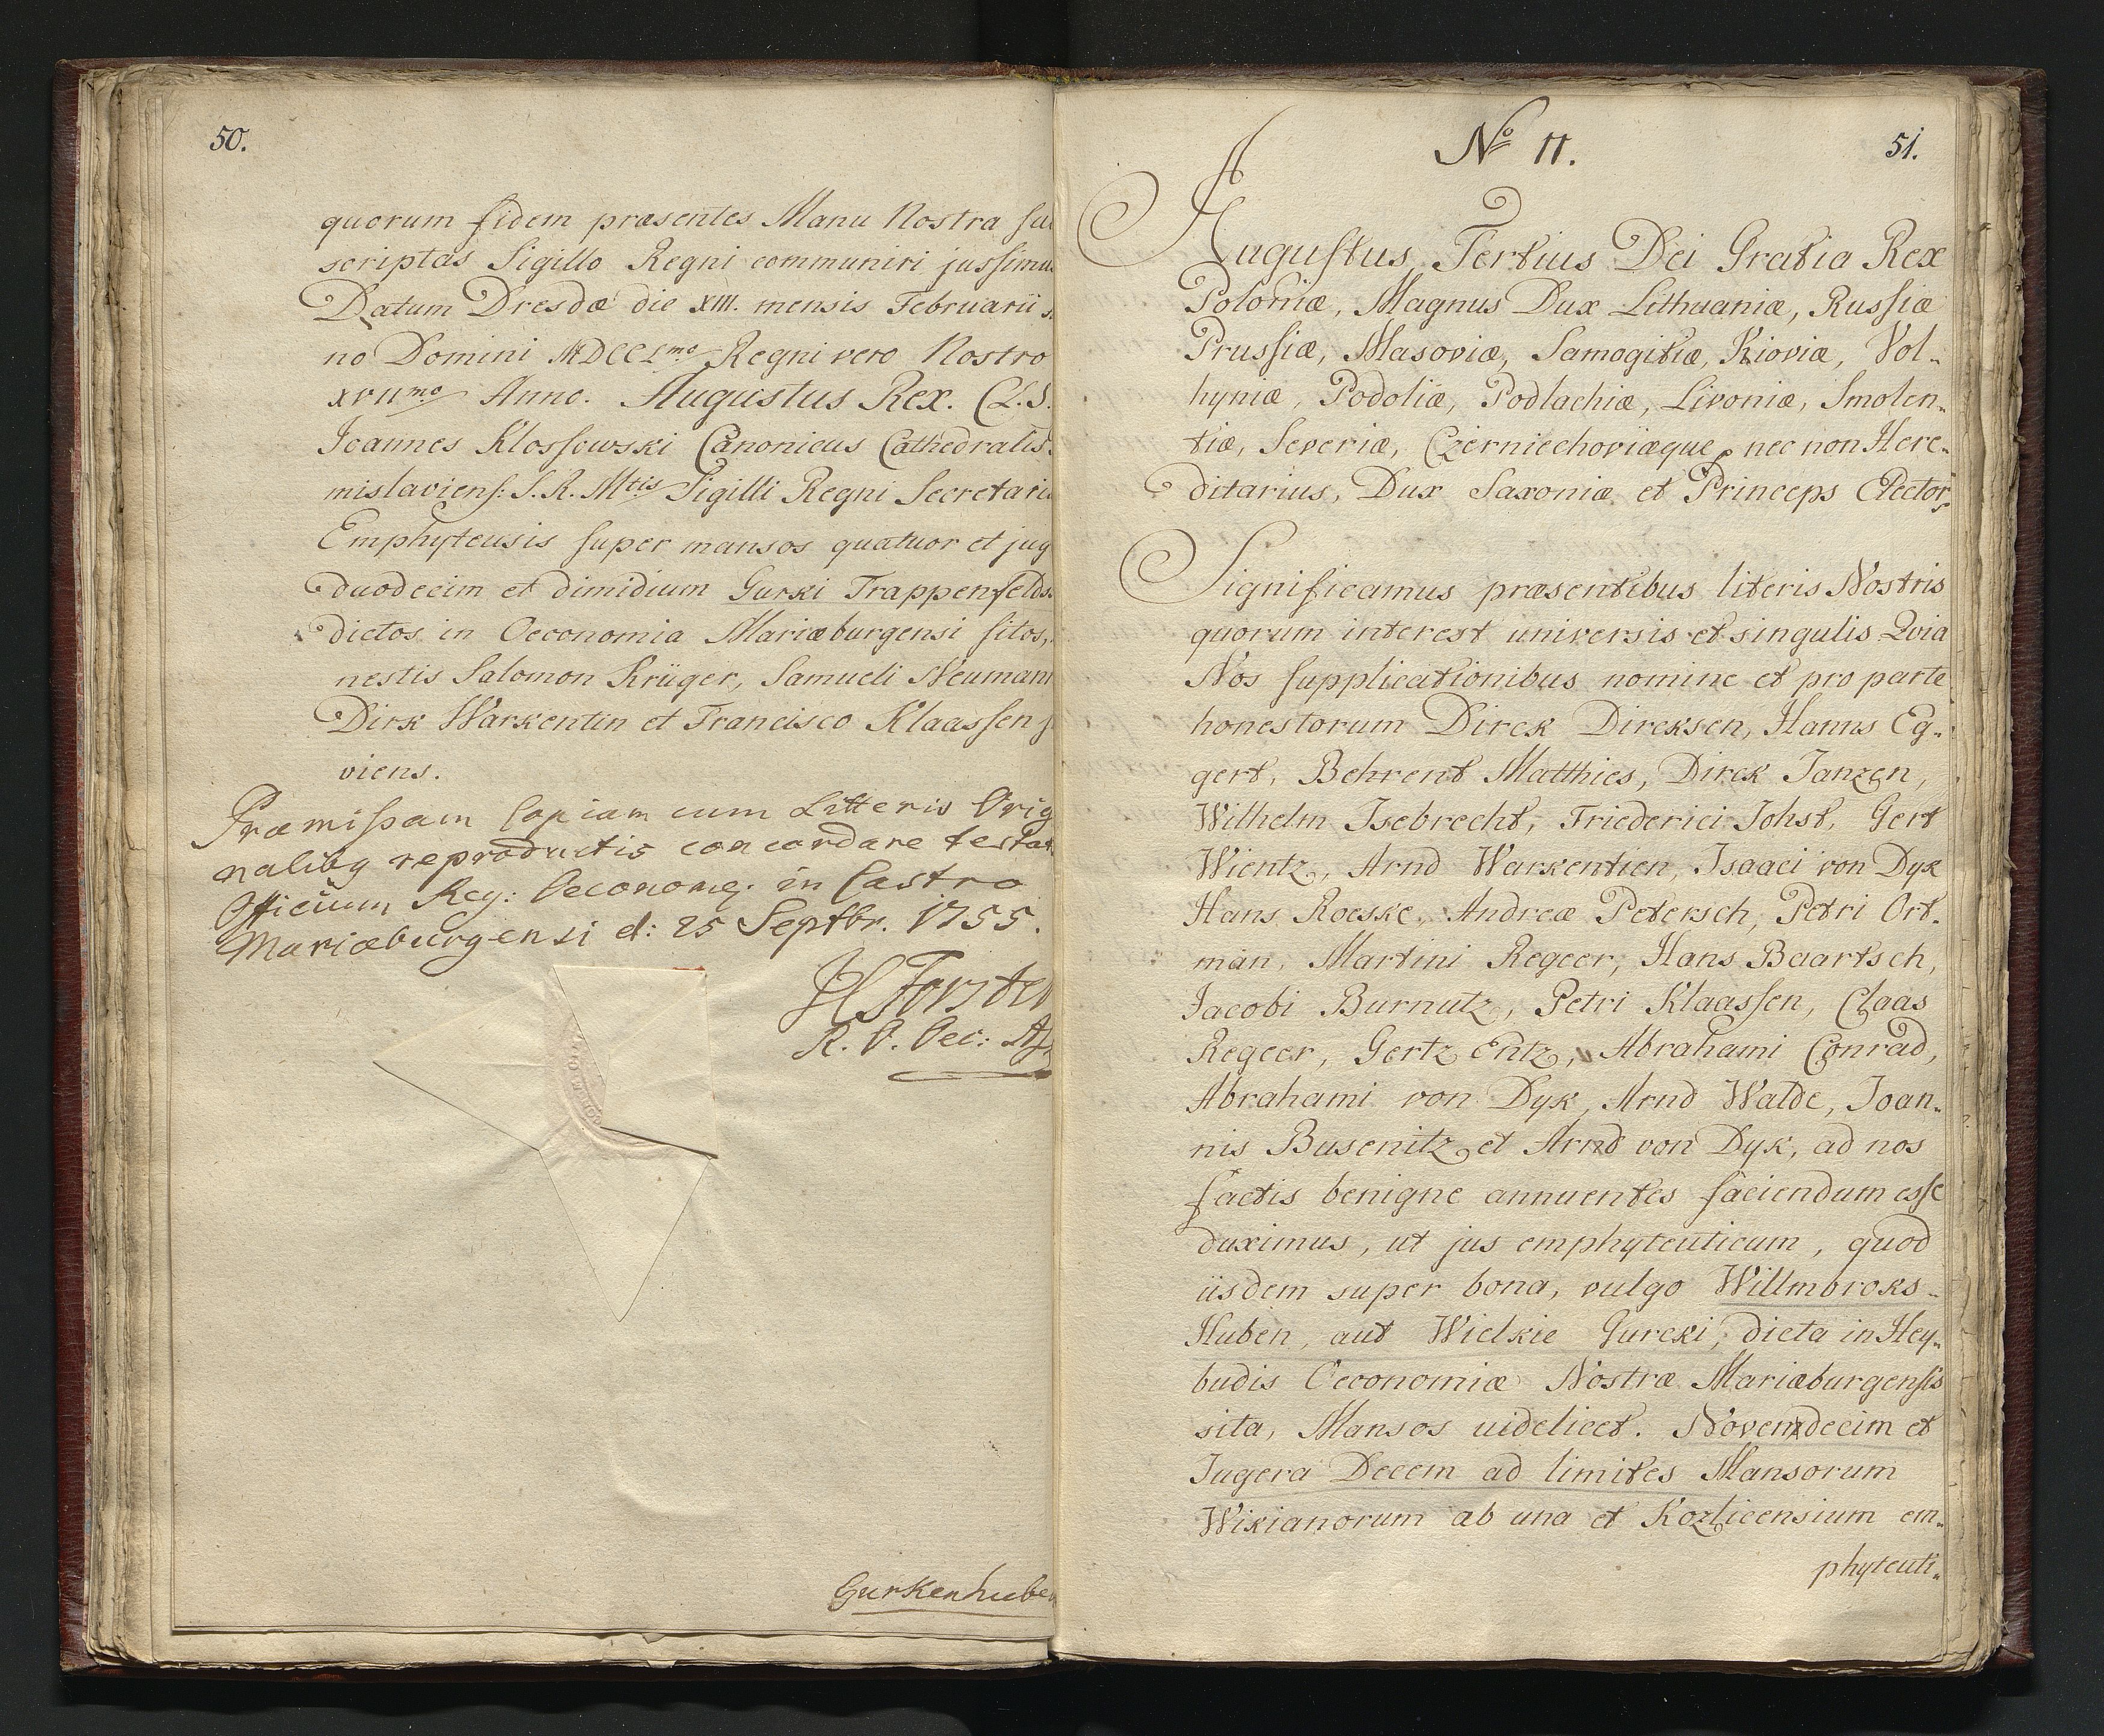 50.
quorum fidem præsentes Manu Nostra su
scriptas Sigillo Regni communiri jussimus
Datum Dresdæ die XIII. mensis Februarii
no Domini MDCCLmo Regni vero Nostro
XVIImo Anno. Augustus Rex. (L.S.
Joannes Klossowski Canonicus Cathedralis
mislaviens: S. R. Mtis Sigilli Regni Secretari
Emphyteusis super mansos quatuor et jug
duodecim et dimidium Gurki Trappenfelds
dictos in Oeconomia Mariæburgensi sitos,
nestis Salomon Krüger, Samueli Neuman
Dirk Warkentin et Francisco Klaassen
viens.
Præmissam Copiam cum Litteris Orig
nalibq reproductis concordare testat
Officium Reg: Oeconomq. in Castro
Mariæburgensi d: 25 Septbr. 1755.
R. O. Oec:
Gurkenhube
No 11.
51.
Augustus Tertius Dei Gratia Rex
Poloniæ, Magnus Dux Lithuaniæ, Russiæ
Prussiæ, Masoviæ, Samogitiæ, Kioviæ, Vol-
hyniæ, Podoliæ, Podlachiæ, Livoniæ, Smolen-
tiæ, Severiæ, Czerniechoviæque, nec non Here-
ditarius, Dux Saxoniæ et Princeps Elector
Significamus præsentibus literis Nostris
quorum interest universis et singulis Qvia
Nos supplicationibus nomine et pro parte
honestorum Dirck Dircksen, Hanns Eg-
gert, Behrent Matthies, Dirck Janzen,
Wilhelm Isebrecht, Friederici Johst, Gert
Wientz, Arnd Warkentien, Isaaci von Dyk
Hans Roeske, Andreæ Petersch, Petri Ort-
man, Martini Regeer, Hans Baartsch,
Jacobi Burnutz, Petri Klaassen, Claas
Regeer, Gertz Entz, Abrahami Conrad,
Abrahami von Dyk, Arnd Walde, Joan-
nis Busenitz et Arnd von Dyk, ad nos
factis benigne annuentes faciendum esse
duximus, ut jus emphyteuticum, quod
iisdem super bona, vulgo Willmbroks-
Huben, aut Wielkie Gurcki, dicta in Hey-
budis Oeconomiæ Nostræ Mariæburgensis
sita, Mansos uidelicet. Novemdecim et
Jugera Decem ad limites Mansorum
Wikianorum ab una et Kozlicensium em-
phyteuti-